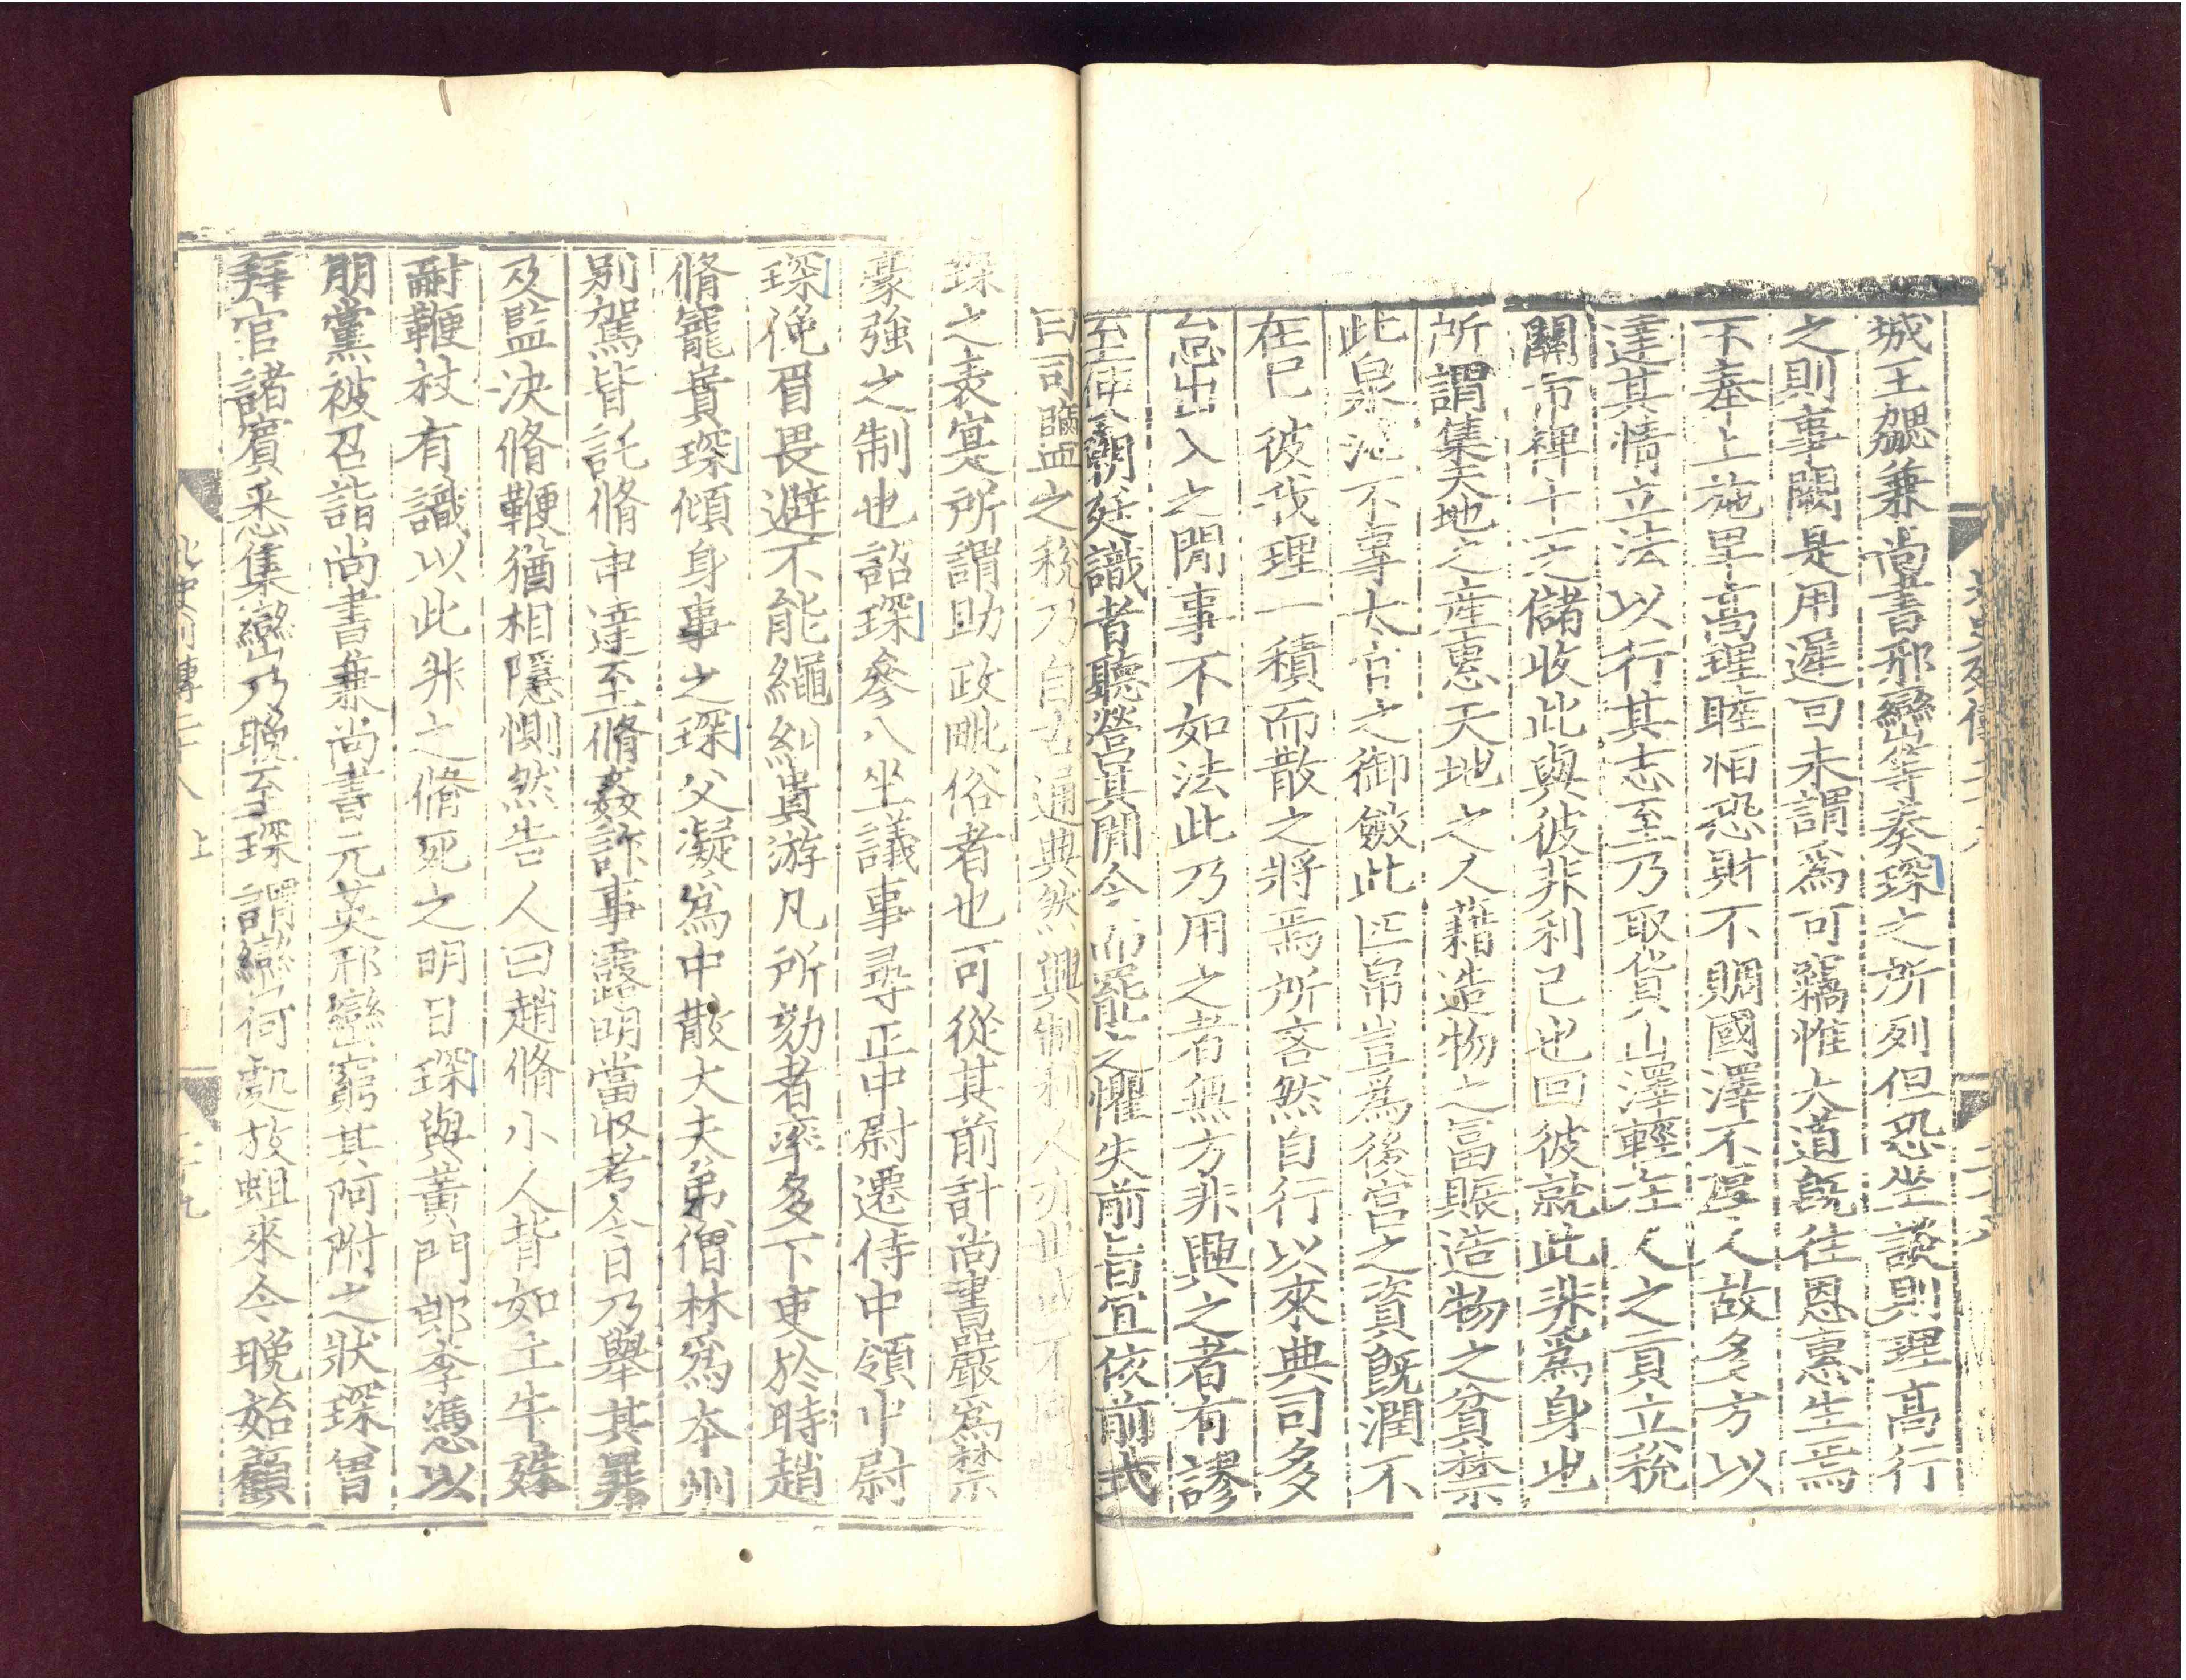 城王勰兼尚書邢巒等奏琛之所列但恐坐談則理高行
之則事闕是用遲回未謂爲可竊惟大道旣往恩惠生焉
下奉上施卑高理睦恒恐財不賙國澤不厚人故多方以
達其情立法以行其志至乃取貨山澤輕在人之貢立稅
關市裨十一之儲收此與彼非利己也回彼就此非爲身也
所謂集天地之産惠天地之人藉造物之富賑造物之貧禁
此泉池不專大官之御斂此匹帛豈爲後宮之資旣潤不
在己彼我理一積而散之將焉所吝然自行以來典司多
怠出入之間事不如法此乃用之者無方非興之者有謬
至使朝廷識者聽營其間今而罷之懼失前旨宜依前式
曰司鹽之稅乃自古通典然興制利人亦世或不同
琛之表寔所謂助政毗俗者也可從其前計尚書嚴爲禁
豪強之制也詔琛參八坐議事尋正中尉遷侍中領中尉
琛俛眉畏避不能繩糾貴游凡所劾者率多下吏於時趙
脩寵貴琛傾身事之琛父凝爲中散大夫弟僧林爲本州
别駕皆託脩申達至脩姦詐事露明當收考今日乃舉其罪
及監決脩鞭猶相隱惻然告人曰趙脩小人背如土牛殊
耐鞭杖有識以此非之脩死之明日琛與黃門郎李憑以
朋黨被召詣尚書兼尚書元英邢巒窮其阿附之狀琛曾
拜官諸賓悉集巒乃晚至琛謂巒何處放蛆來今晚始顧
北史列傳二十八 上
二十九